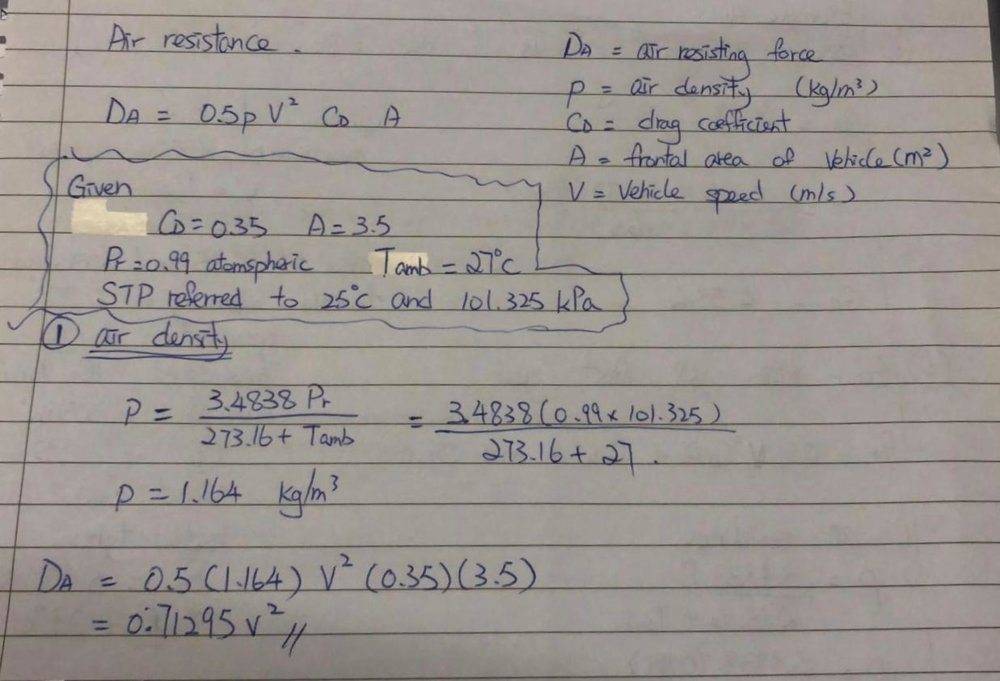 Air resistance.
DA = 0.5 ρ V² CD A
DA = air resisting force
ρ = air density (kg/m³)
CD = drag coefficient
A = frontal area of vehicle (m²)
V = vehicle speed (m/s)
Given
CD = 0.35 A = 3.5
Pr = 0.99 atomspheric Tamb = 27°C
STP referred to 25°C and 101.325 kPa
① air density
ρ = 3.4838 Pr / 273.16 + Tamb = 3.4838 (0.99 × 101.325) / 273.16 + 27.
ρ = 1.164 kg/m³
DA = 0.5 (1.164) V² (0.35)(3.5)
= 0.71295 V² //